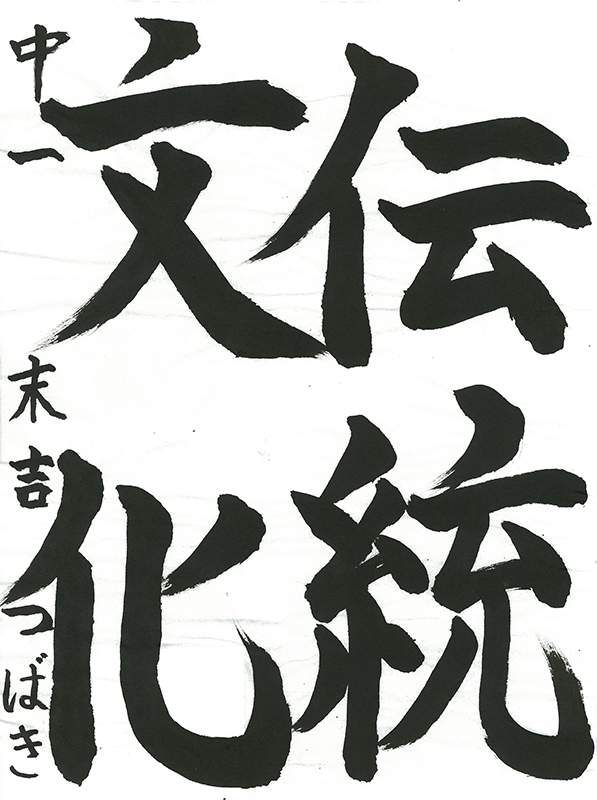 伝統
文化
中一 末吉つばき